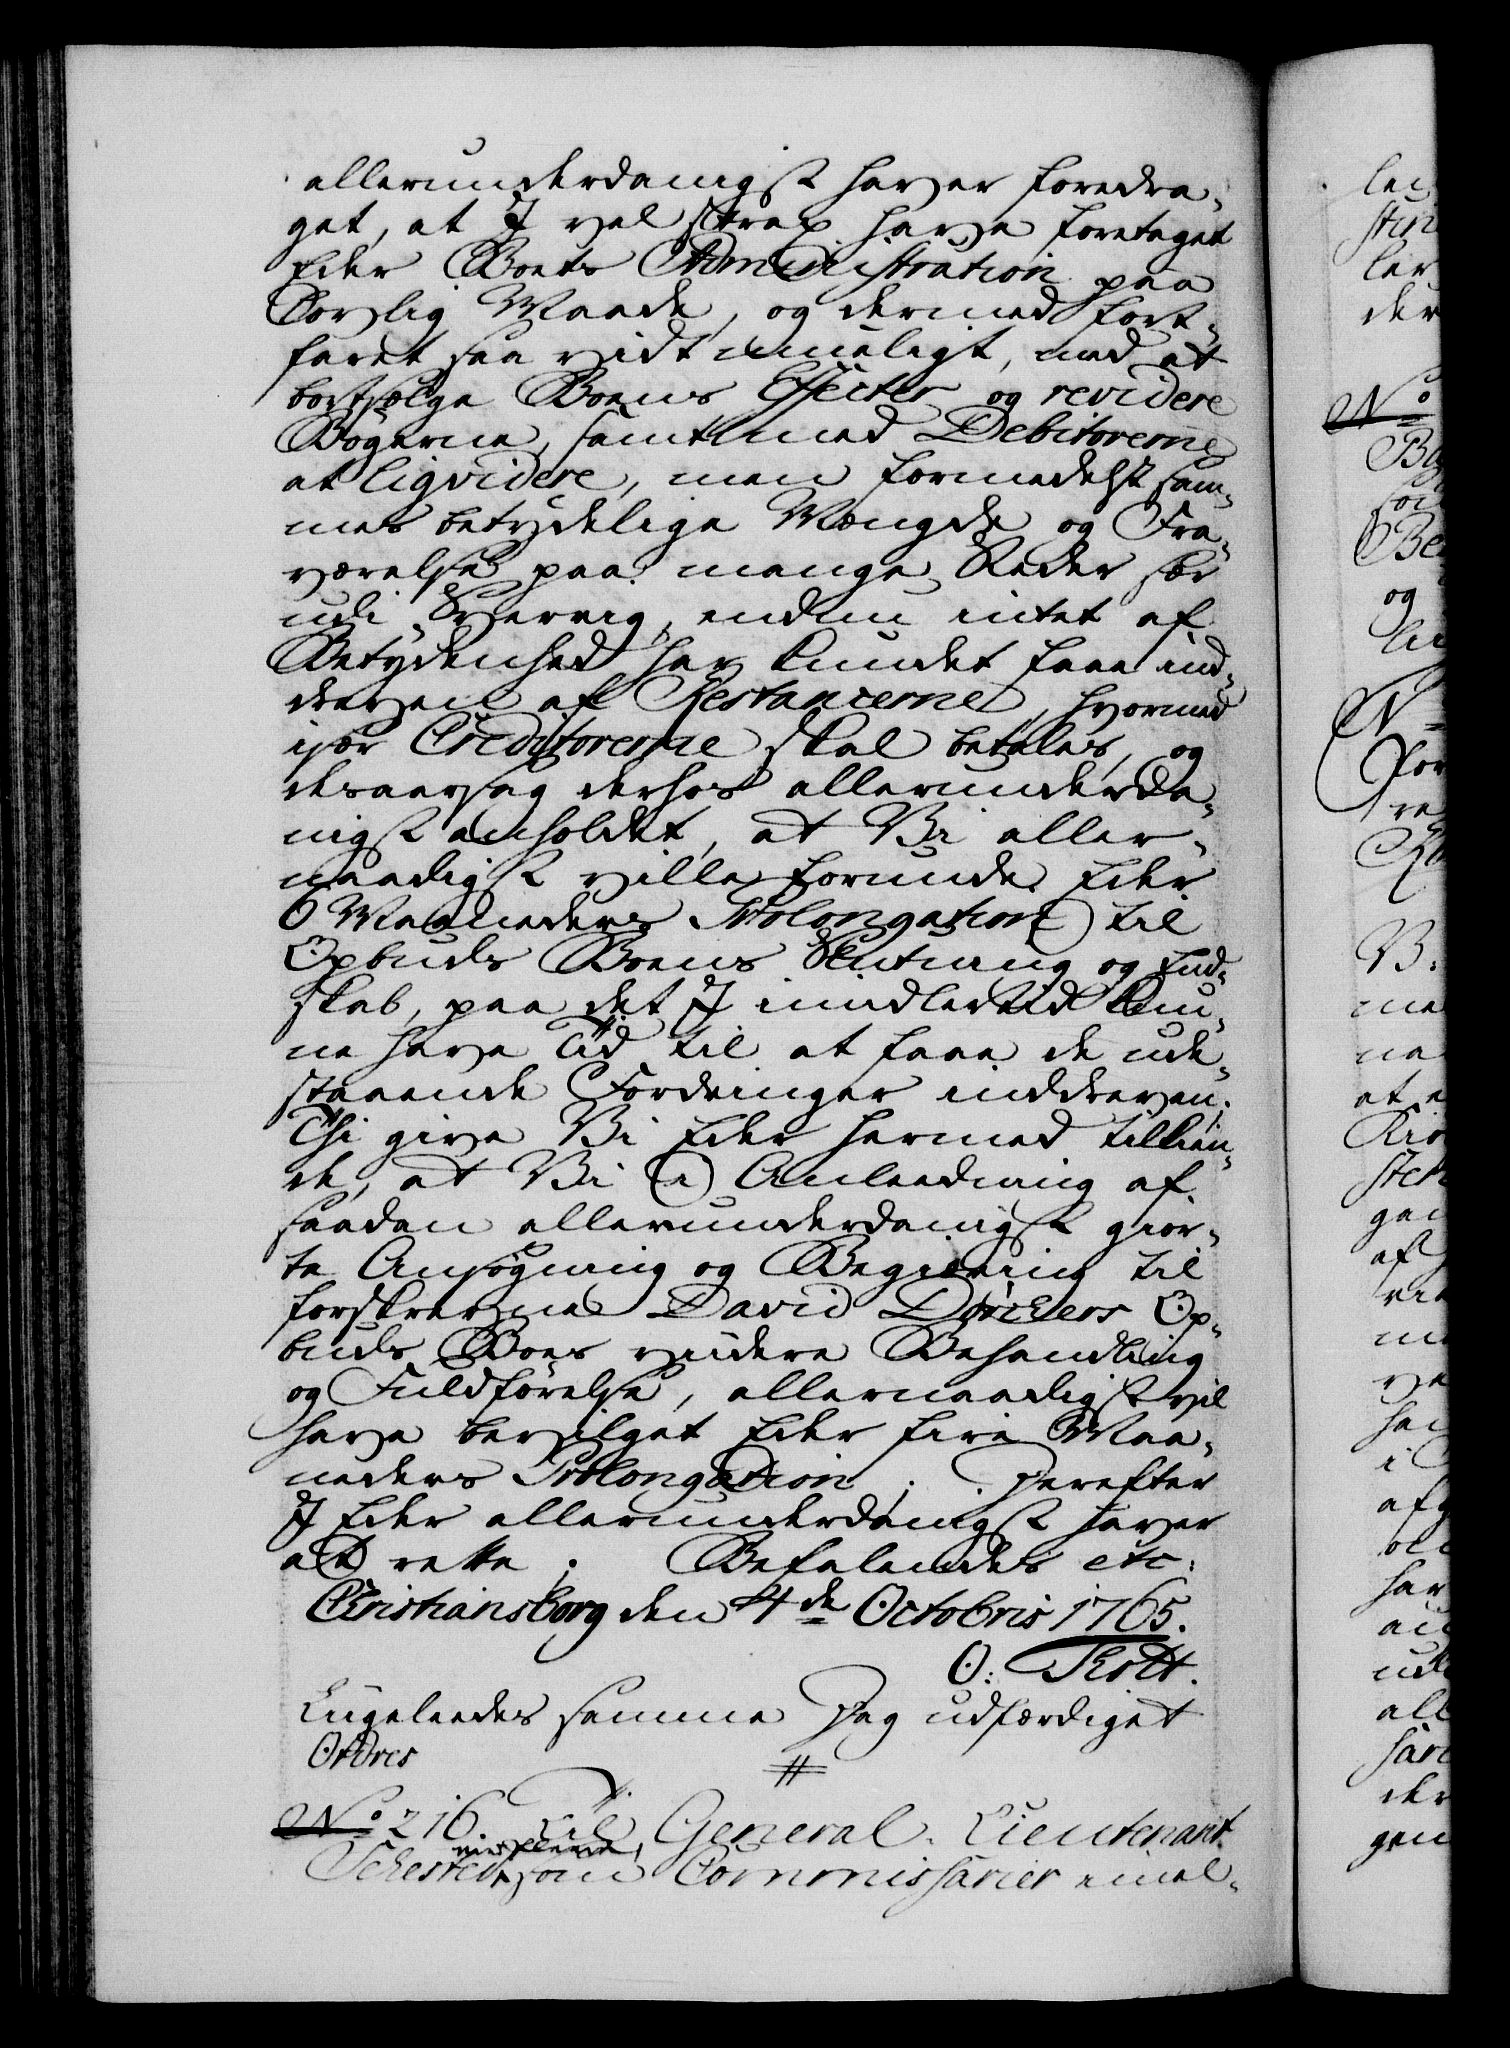 allerunderdanigst haver foredra-
get, at I vel strax have foretaget
Eder Boets Administration paa
lovlig Maade, og dermed fort-
faret saa vidt mueligt, med at
bortsælge Boens Effecter og revidere
Bøgerne, samt med Debitorerne
at liqvidere, men formedelst sam-
mes betydelige Mængde og Fra-
værelse paa mange Steder sær
udi Sverrig, endnu intet af
Betydenhed har kundet faae ind-
dreven af Restancerne, hvormed
især Creditorerne skal betales, og
desaarsag derhos allerunderda-
nigst anholdet, at Vi aller-
naadigst ville forunde Eder
6 Maaneders Prolongation til
Opbuds Boens Slutning og End-
skab, paa det I imidlertid kun-
ne have Tiid til at faae de ude-
staaende Fordringer inddreven;
Thi give Vi Eder hermed tilkien-
de, at Vi i Anleedning af
saadan allerunderdanigst gior-
te Ansøgning og Begiering til
forskrevne David Dorchers Op-
buds Boes viidere Behandling
og Fuldførelse, allernaadigst vil
have bevilget Eder fire Maa-
neders Prolongation. Derefter
I Eder allerunderdanigst haver
at rette. Befalendes etc:
Christiansborg den 4de Octobris 1765.
O: Thott.
Ligeleedes samme Dag udfærdiget
Ordres
No 216. Til General-Lieutenant
Schested, som Commissarier emel-